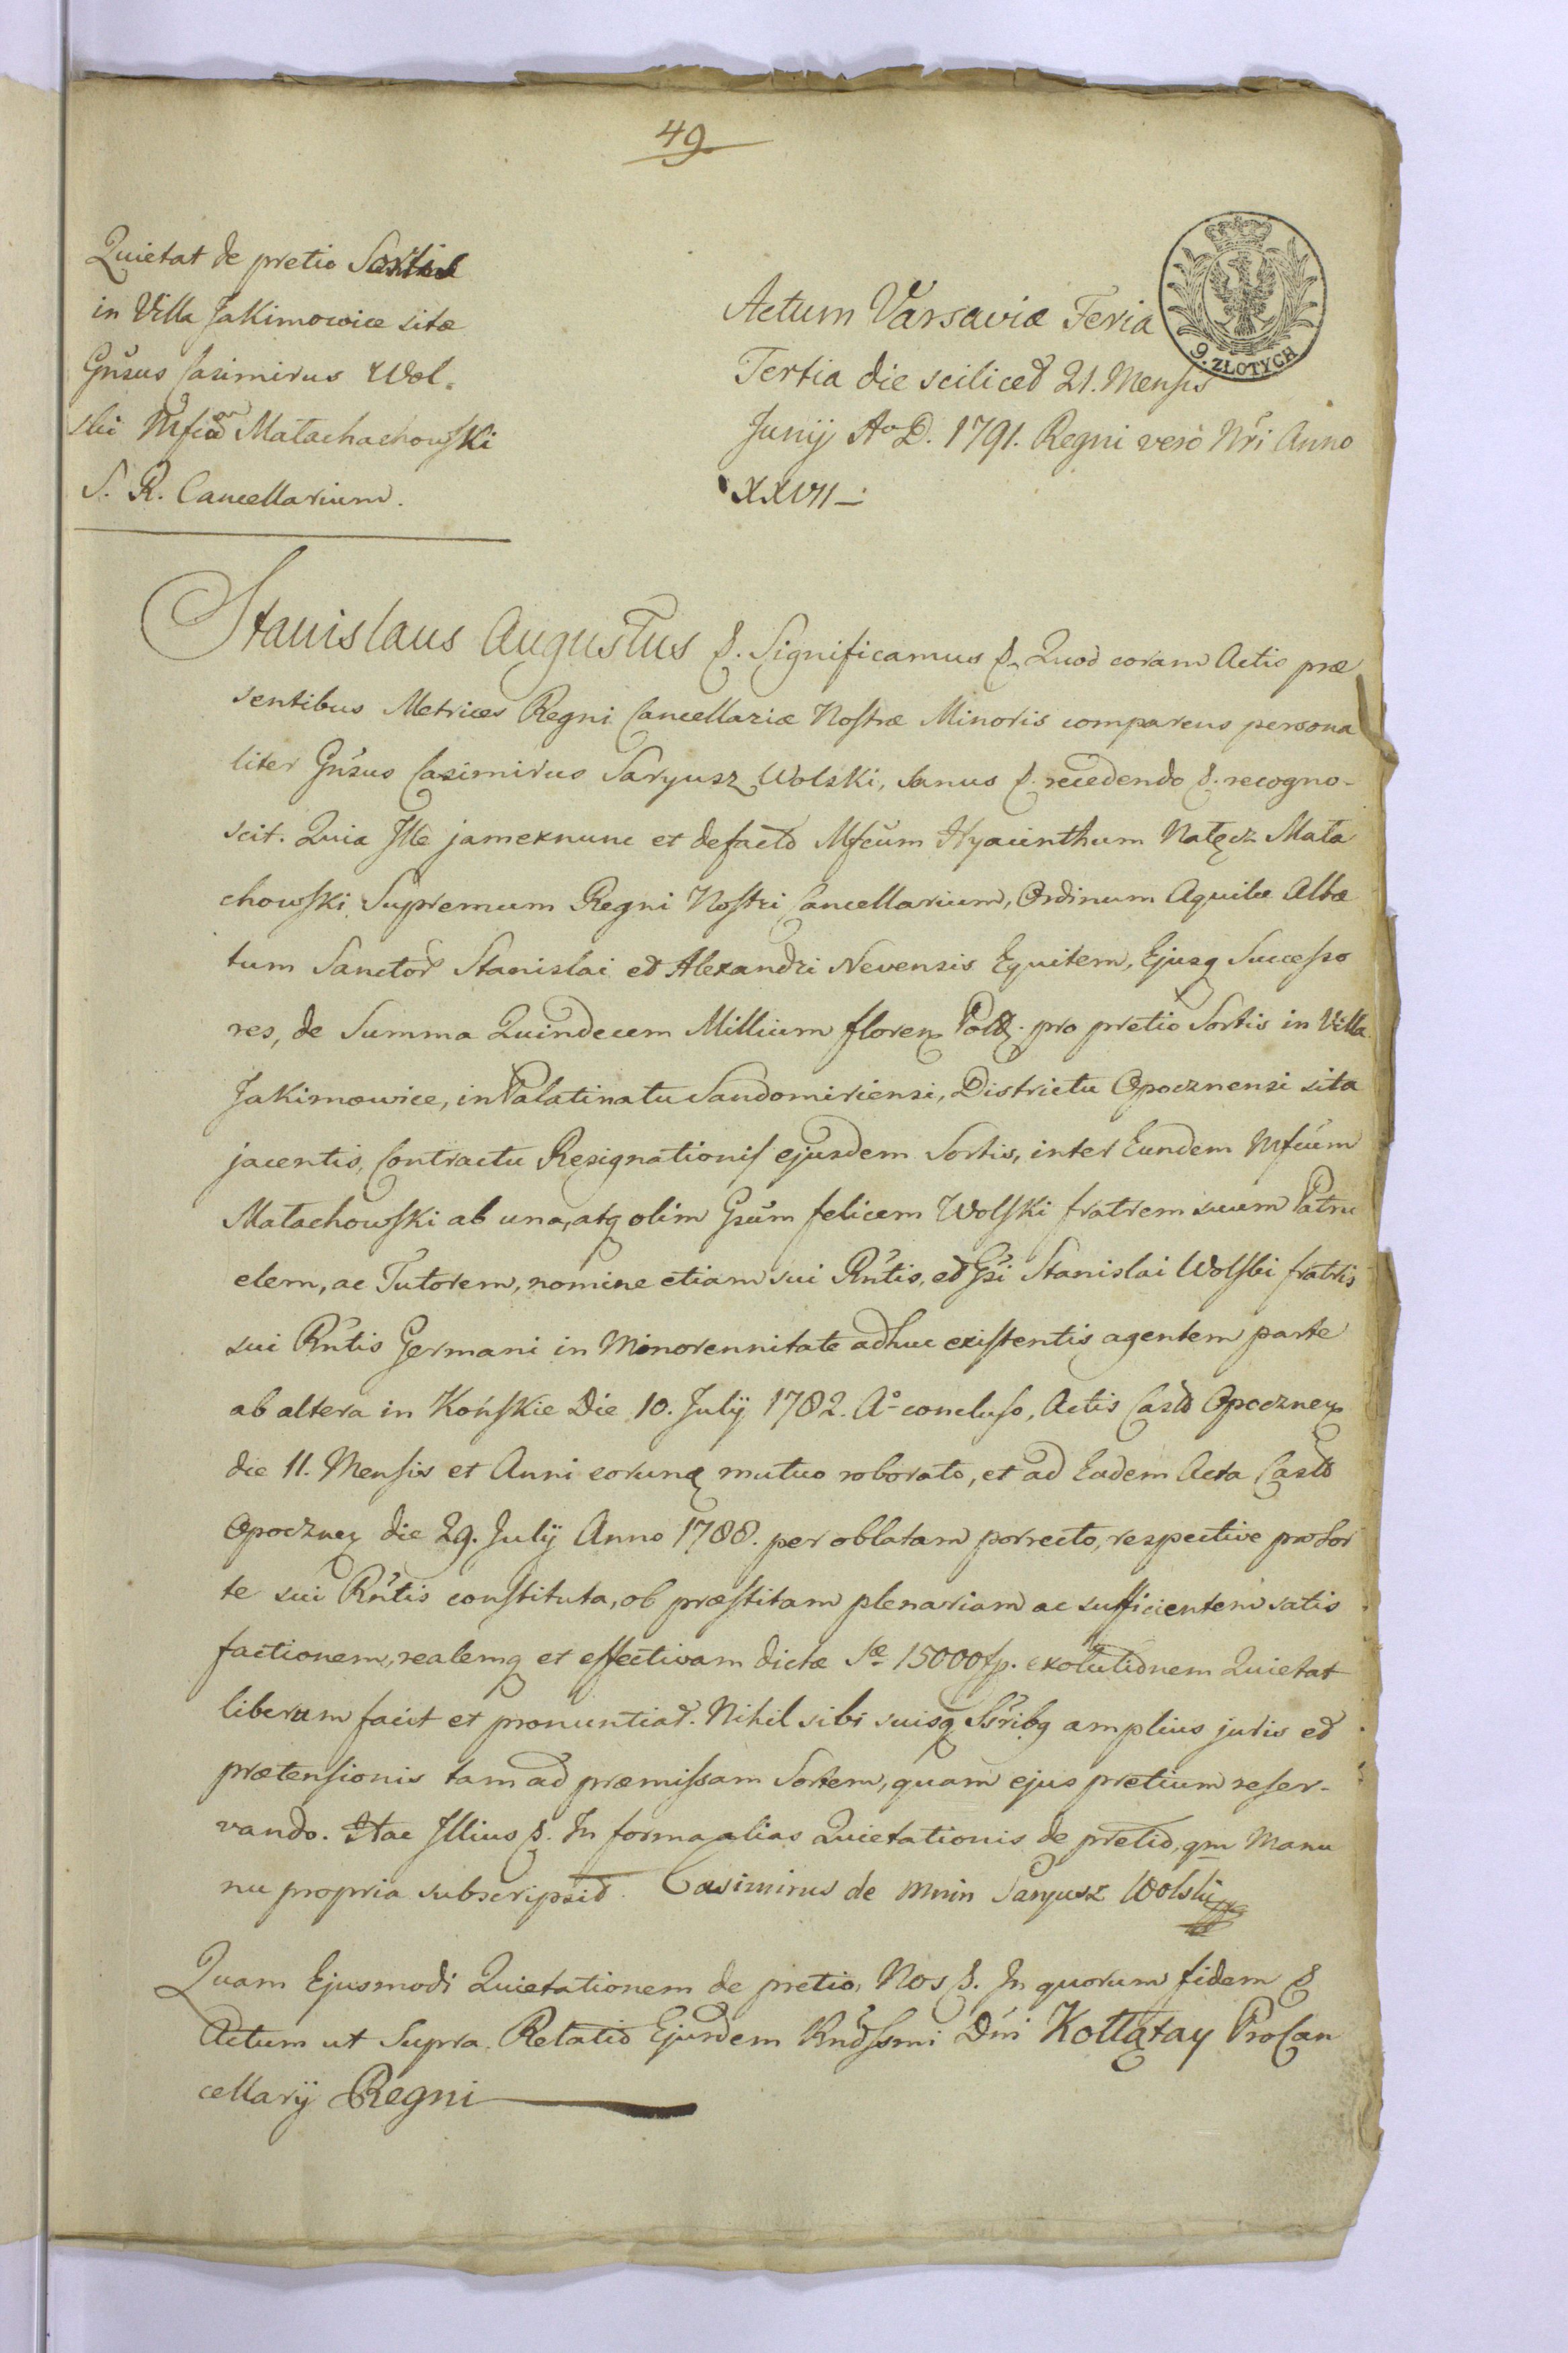 49
Quietat de pretio Sortis
in Villa Jakimowice sitæ
Gnsus Casimirus Wol-
ski Mfcum Małachachowski
S. R. Cancellarium.
Actum Varsaviæ Feria
Tertia die scilicet 21. Mensis
Junij Ao D. 1791. Regni vero Nri Anno
XXVII
9. ZŁOTYCH
Stanislaus Augustus &. Significamus &. Quod coram Actis præ
sentibus Metrices Regni Cancellariæ Nostræ Minoris comparens persona
liter Gnsus Casimirus Saryusz Wolski, sanus &. recedendo &. recogno-
scit. Quia Ille jamexnunc et defacto Mfcum Hyacinthum Nałęcz Mała
chowski Supremum Regni Nostri Cancellarium, Ordinum Aquilæ Albæ
tum Sanctor Stanislai et Alexandri Nevensis Equitem, Ejusq Successo
res, de Summa Quindecem Millium floren Poll. pro pretio Sortis in Villa
Jakimowice, in Palatinatu Sandomiriensi, Districtu Opocznensi sita
jacentis, Contractu Resignationis ejusdem Sortis, inter Eundem Mfcum
Małachowski ab una, atq olim Gsum felicem Wolski fratrem suum Patru
elem, ac Tutorem, nomine etiam sui Rntis, et Gsi Stanislai Wolski fratris
sui Rntis Germani in Minorennitate adhuc existentis agentem parte
ab altera in Końskie Die 10. Julij 1782. Ao concluso, Actis Castr Opocznen
die 11. Mensis et Anni eorund mutuo roborato, et ad Eadem Acta Castr
Opocznen die 29. Julij Anno 1788. per oblatam porrecto, respective pro Sor
te sui Rntis constituta, ob præstitam plenariam ac sufficientem satis
factionem, realemq et effectivam dictæ Sæ 15000 fp. exolutionem Quietat
liberum facit et pronuntiat. Nihil sibi suisq Ssribq amplius juris et
prætensionis tam ad præmissam Sortem, quam ejus pretium reser-
vando. Hac Illius &. In forma alias Quietationis de pretio, qm Manu
nu propria subscripsit. Casimirus de mnin Saryusz Wolski
Quam Ejusmodi Quietationem de pretio, Nos &. In quorum fidem &
Actum ut Supra. Relatio Ejusdem Rndssmi Dni Kołłątay ProCan
cellarij Regni